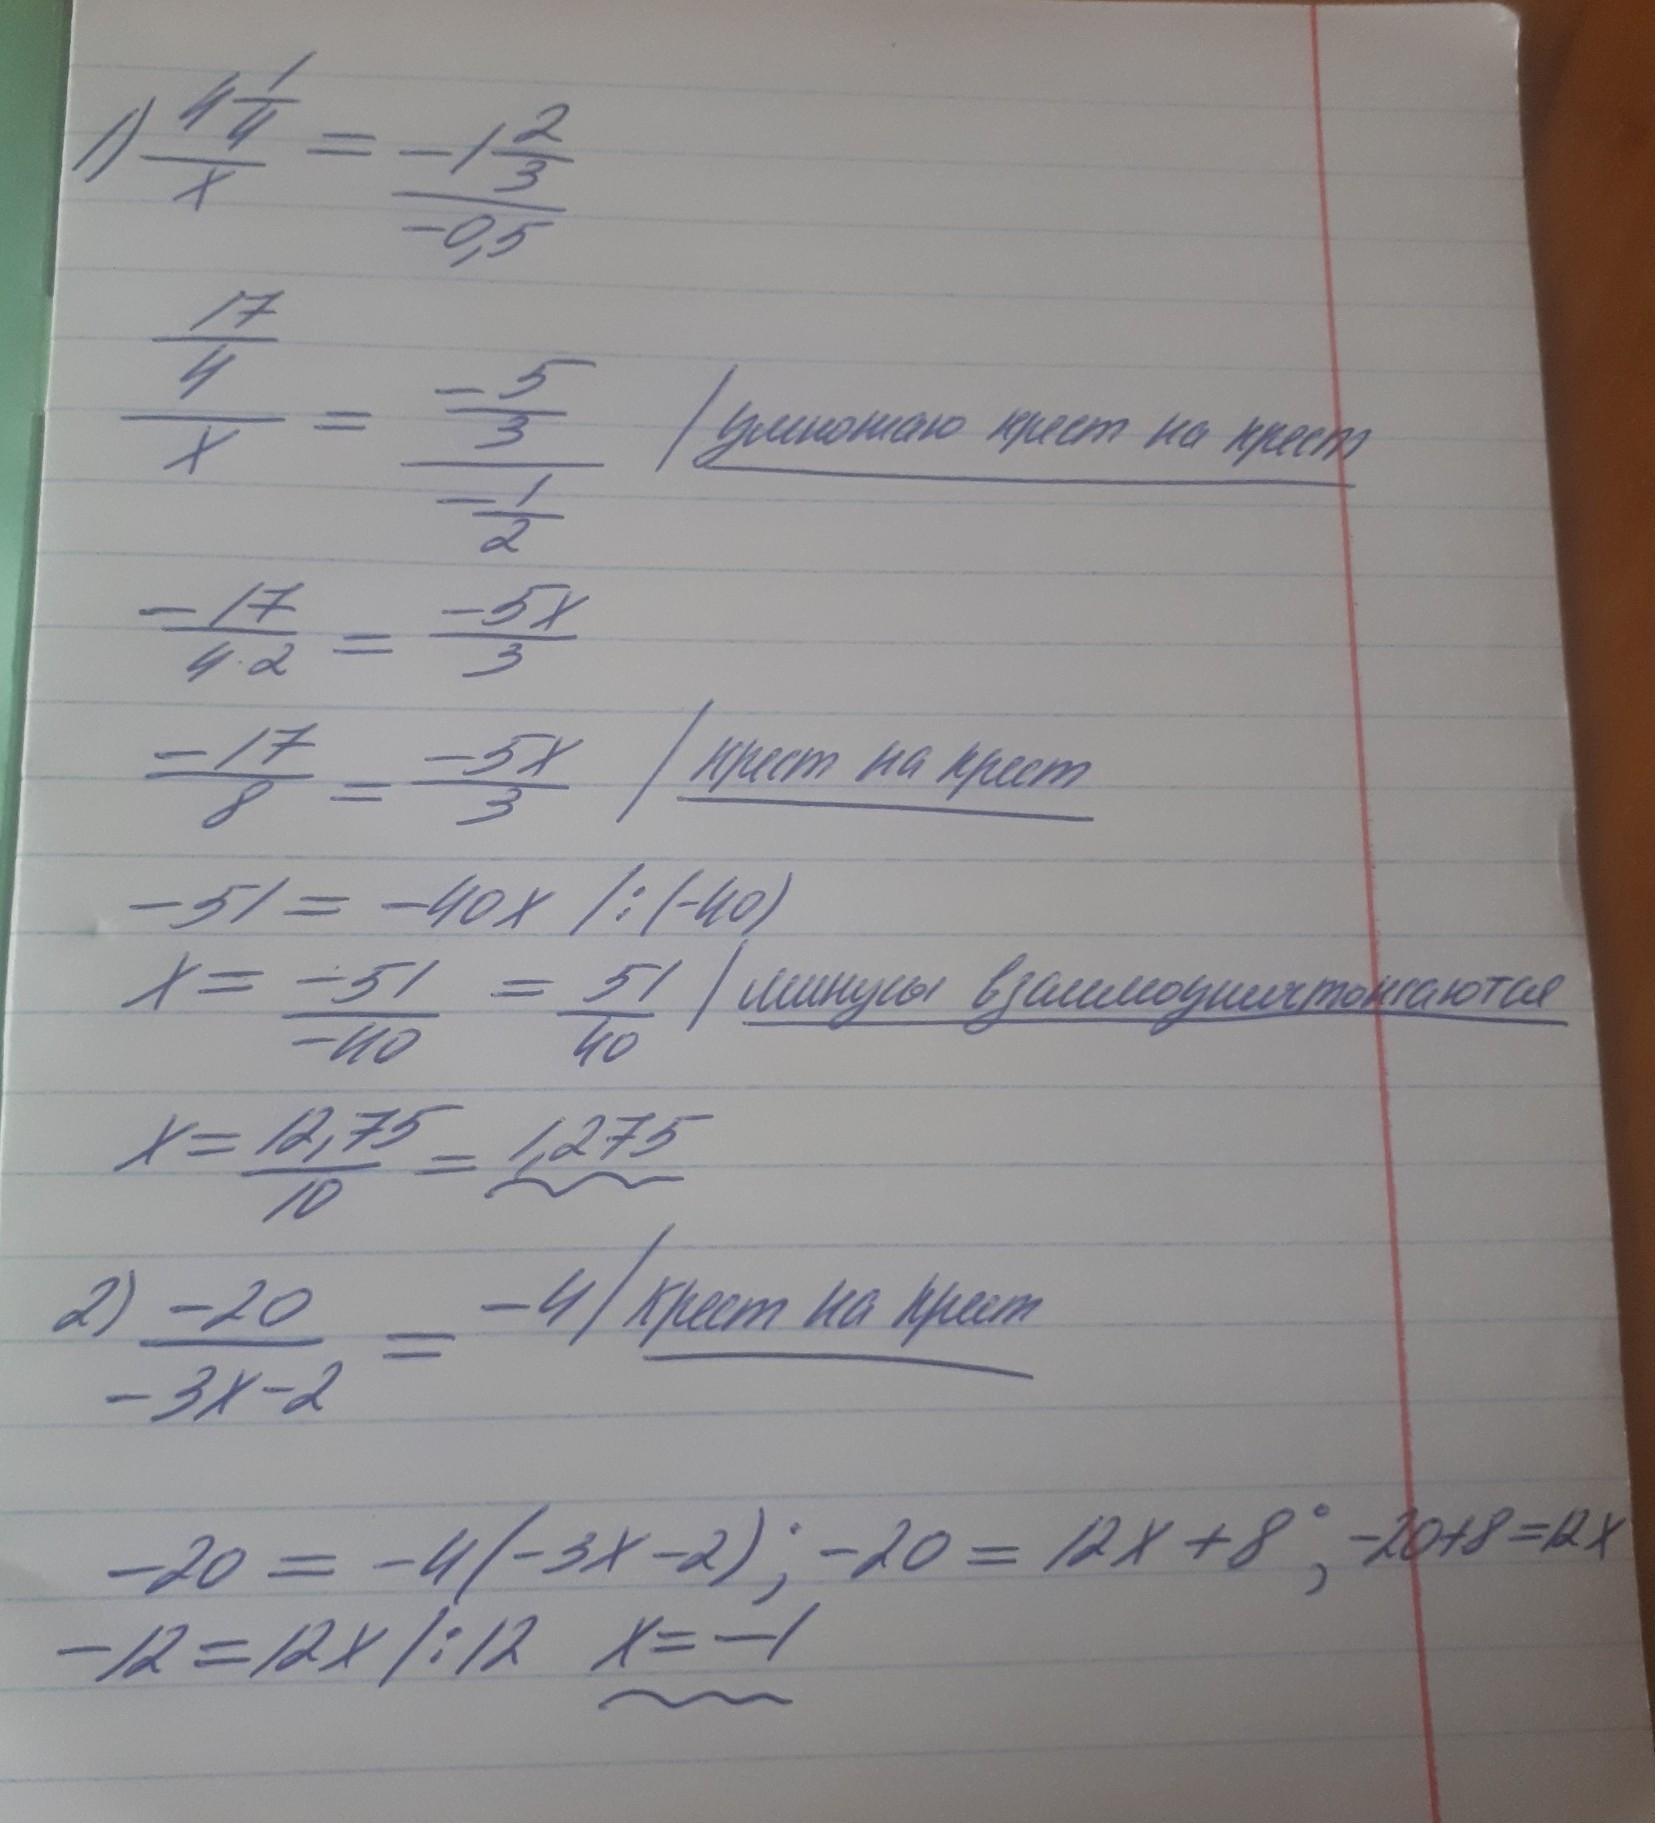 1) 4 1/4 / x = -1 2/3 / -0,5
17/4 / x = -5/3 / -1/2 | умножаю крест на крест
-17/4·2 = -5x/3
-17/8 = -5x/3 | крест на крест
-51 = -40x |:(-40)
x = -51/-40 = 51/40 | минусы взаимоуничтожаются
x = 12,75/10 = 1,275
2) -20/-3x-2 = -4 | крест на крест
-20 = -4(-3x-2); -20 = 12x+8; -20+8=12x
-12=12x |:12 x=-1